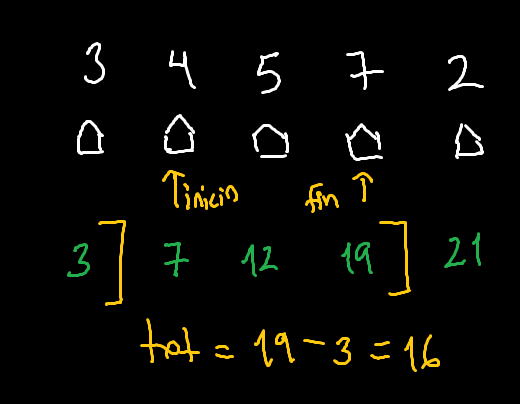 3 4 5 7 2
↑inicio fin ↑
3] 7 12 19] 21
tot = 19 - 3 = 16